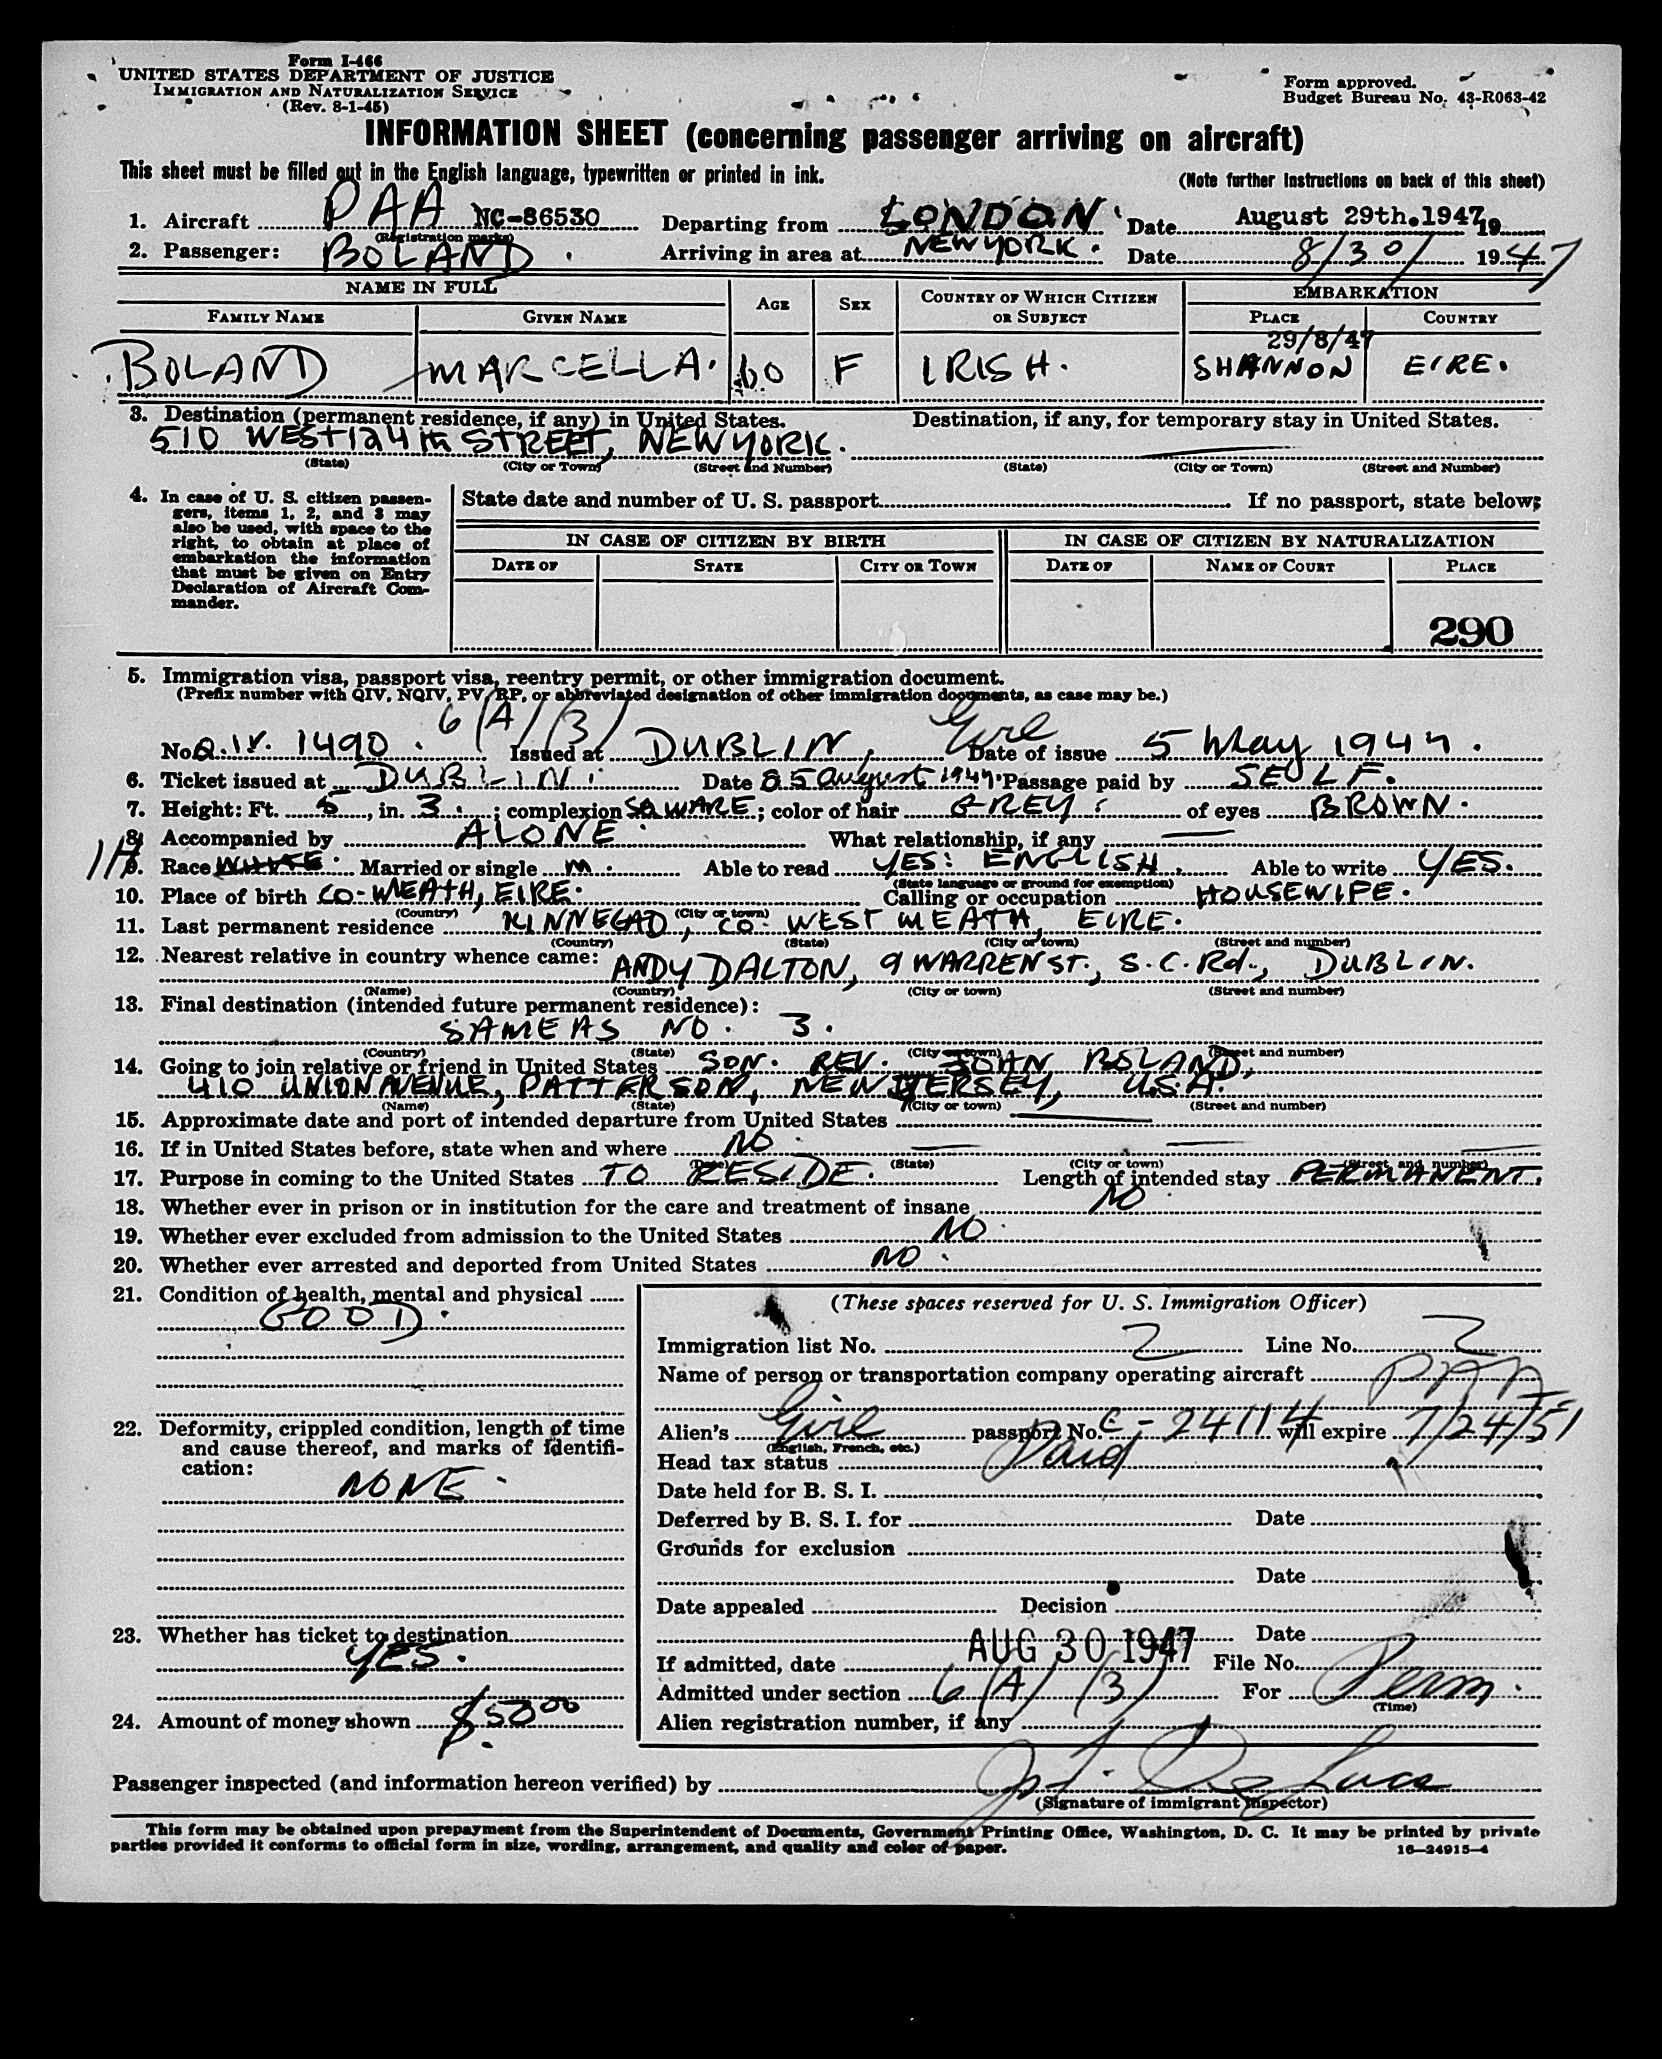 Form I-466
UNITED STATES DEPARTMENT OF JUSTICE
IMMIGRATION AND NATURALIZATION SERVICE
(Rev. 8-1-45)
Form approved.
Budget Bureau No. 43-R063-42
INFORMATION SHEET (concerning passenger arriving on aircraft)
This sheet must be filled out in the English language, typewritten or printed in ink.
(Note further instructions on back of this sheet)
1. Aircraft PAA NC-86530 Departing from LONDON Date August 29th.1947, 19
(Registration marks)
2. Passenger: BOLAND. Arriving in area at NEW YORK. Date 8/30/ 1947
NAME IN FULL AGE SEX COUNTRY OF WHICH CITIZEN OR SUBJECT EMBARKATION
FAMILY NAME GIVEN NAME PLACE COUNTRY
29/8/47
BOLAND MARCELLA. 60 F IRISH. SHANNON EIRE.
3. Destination (permanent residence, if any) in United States. Destination, if any, for temporary stay in United States.
510 WEST 124 th STREET, NEW YORK.
(State) (City or Town) (Street and Number) (State) (City or Town) (Street and Number)
4. In case of U. S. citizen passengers, items 1, 2, and 3 may also be used, with space to the right, to obtain at place of embarkation the information that must be given on Entry Declaration of Aircraft Commander.
State date and number of U. S. passport If no passport, state below:
IN CASE OF CITIZEN BY BIRTH IN CASE OF CITIZEN BY NATURALIZATION
DATE OF STATE CITY OR TOWN DATE OF NAME OF COURT PLACE
290
5. Immigration visa, passport visa, reentry permit, or other immigration document.
(Prefix number with QIV, NQIV, PV, RP, or abbreviated designation of other immigration documents, as case may be.)
6 (A) (3) Eire
No. Q.IV. 1490. Issued at DUBLIN, Date of issue 5 May 1947.
6. Ticket issued at DUBLIN. Date 25 August 1947. Passage paid by SELF.
7. Height: Ft. 5, in. 3.; complexion SQUARE; color of hair GREY: of eyes BROWN.
8. Accompanied by ALONE. What relationship, if any
9. Race WHITE. Married or single M. Able to read YES: ENGLISH, Able to write YES.
(State language or ground for exemption)
10. Place of birth CO-MEATH, EIRE. Calling or occupation HOUSEWIFE.
(Country) (City or town)
11. Last permanent residence KINNEGAD, CO. WEST MEATH, EIRE.
(Country) (State) (City or town) (Street and number)
12. Nearest relative in country whence came: ANDY DALTON, 9 WARREN ST., S.C.Rd., DUBLIN.
(Name) (Country) (City or town) (Street and number)
13. Final destination (intended future permanent residence):
SAME AS NO. 3.
(Country) (State) (City or town) (Street and number)
14. Going to join relative or friend in United States SON. REV. JOHN BOLAND,
410 UNION AVENUE, PATTERSON, NEW JERSEY, U.S.A.
(Name) (State) (City or town) (Street and number)
15. Approximate date and port of intended departure from United States
16. If in United States before, state when and where NO.
(Date) (State) (City or town) (Street and number)
17. Purpose in coming to the United States TO RESIDE. Length of intended stay PERMANENT.
18. Whether ever in prison or in institution for the care and treatment of insane NO.
19. Whether ever excluded from admission to the United States NO.
20. Whether ever arrested and deported from United States NO.
21. Condition of health, mental and physical
GOOD.
22. Deformity, crippled condition, length of time and cause thereof, and marks of identification:
NONE.
23. Whether has ticket to destination
YES.
24. Amount of money shown $50 00
(These spaces reserved for U. S. Immigration Officer)
Immigration list No. 2 Line No. 2
Name of person or transportation company operating aircraft PAA
Alien's Eire passport No. C-24114 will expire 7/24/51
(English, French, etc.)
Head tax status Paid
Date held for B. S. I.
Deferred by B. S. I. for Date
Grounds for exclusion
Date
Date appealed Decision
Date
If admitted, date AUG 30 1947 File No.
Admitted under section 6 (A) (3) For Perm.
(Time)
Alien registration number, if any
Passenger inspected (and information hereon verified) by
(Signature of immigrant inspector)
This form may be obtained upon prepayment from the Superintendent of Documents, Government Printing Office, Washington, D. C. It may be printed by private
parties provided it conforms to official form in size, wording, arrangement, and quality and color of paper.
16—24915-4